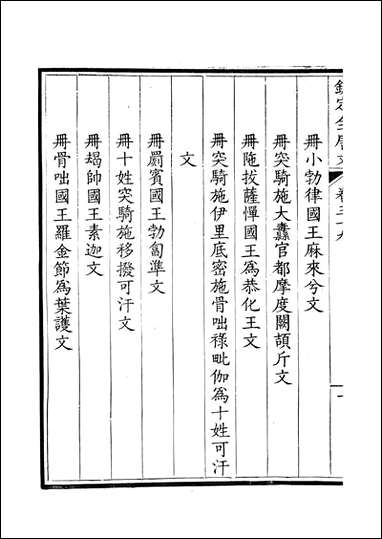 欽定全唐文 卷三十九 一
冊小勃律國王麻來兮文
冊突騎施大纛官都摩度闕頡斤文
冊陁拔薩憚國王爲恭化王文
冊突騎施伊里底密施骨咄祿毗伽爲十姓可汗
文
冊罽賓國王勃匐準文
冊十姓突騎施移撥可汗文
冊朅帥國王素迦文
冊骨咄國王羅金節爲葉護文